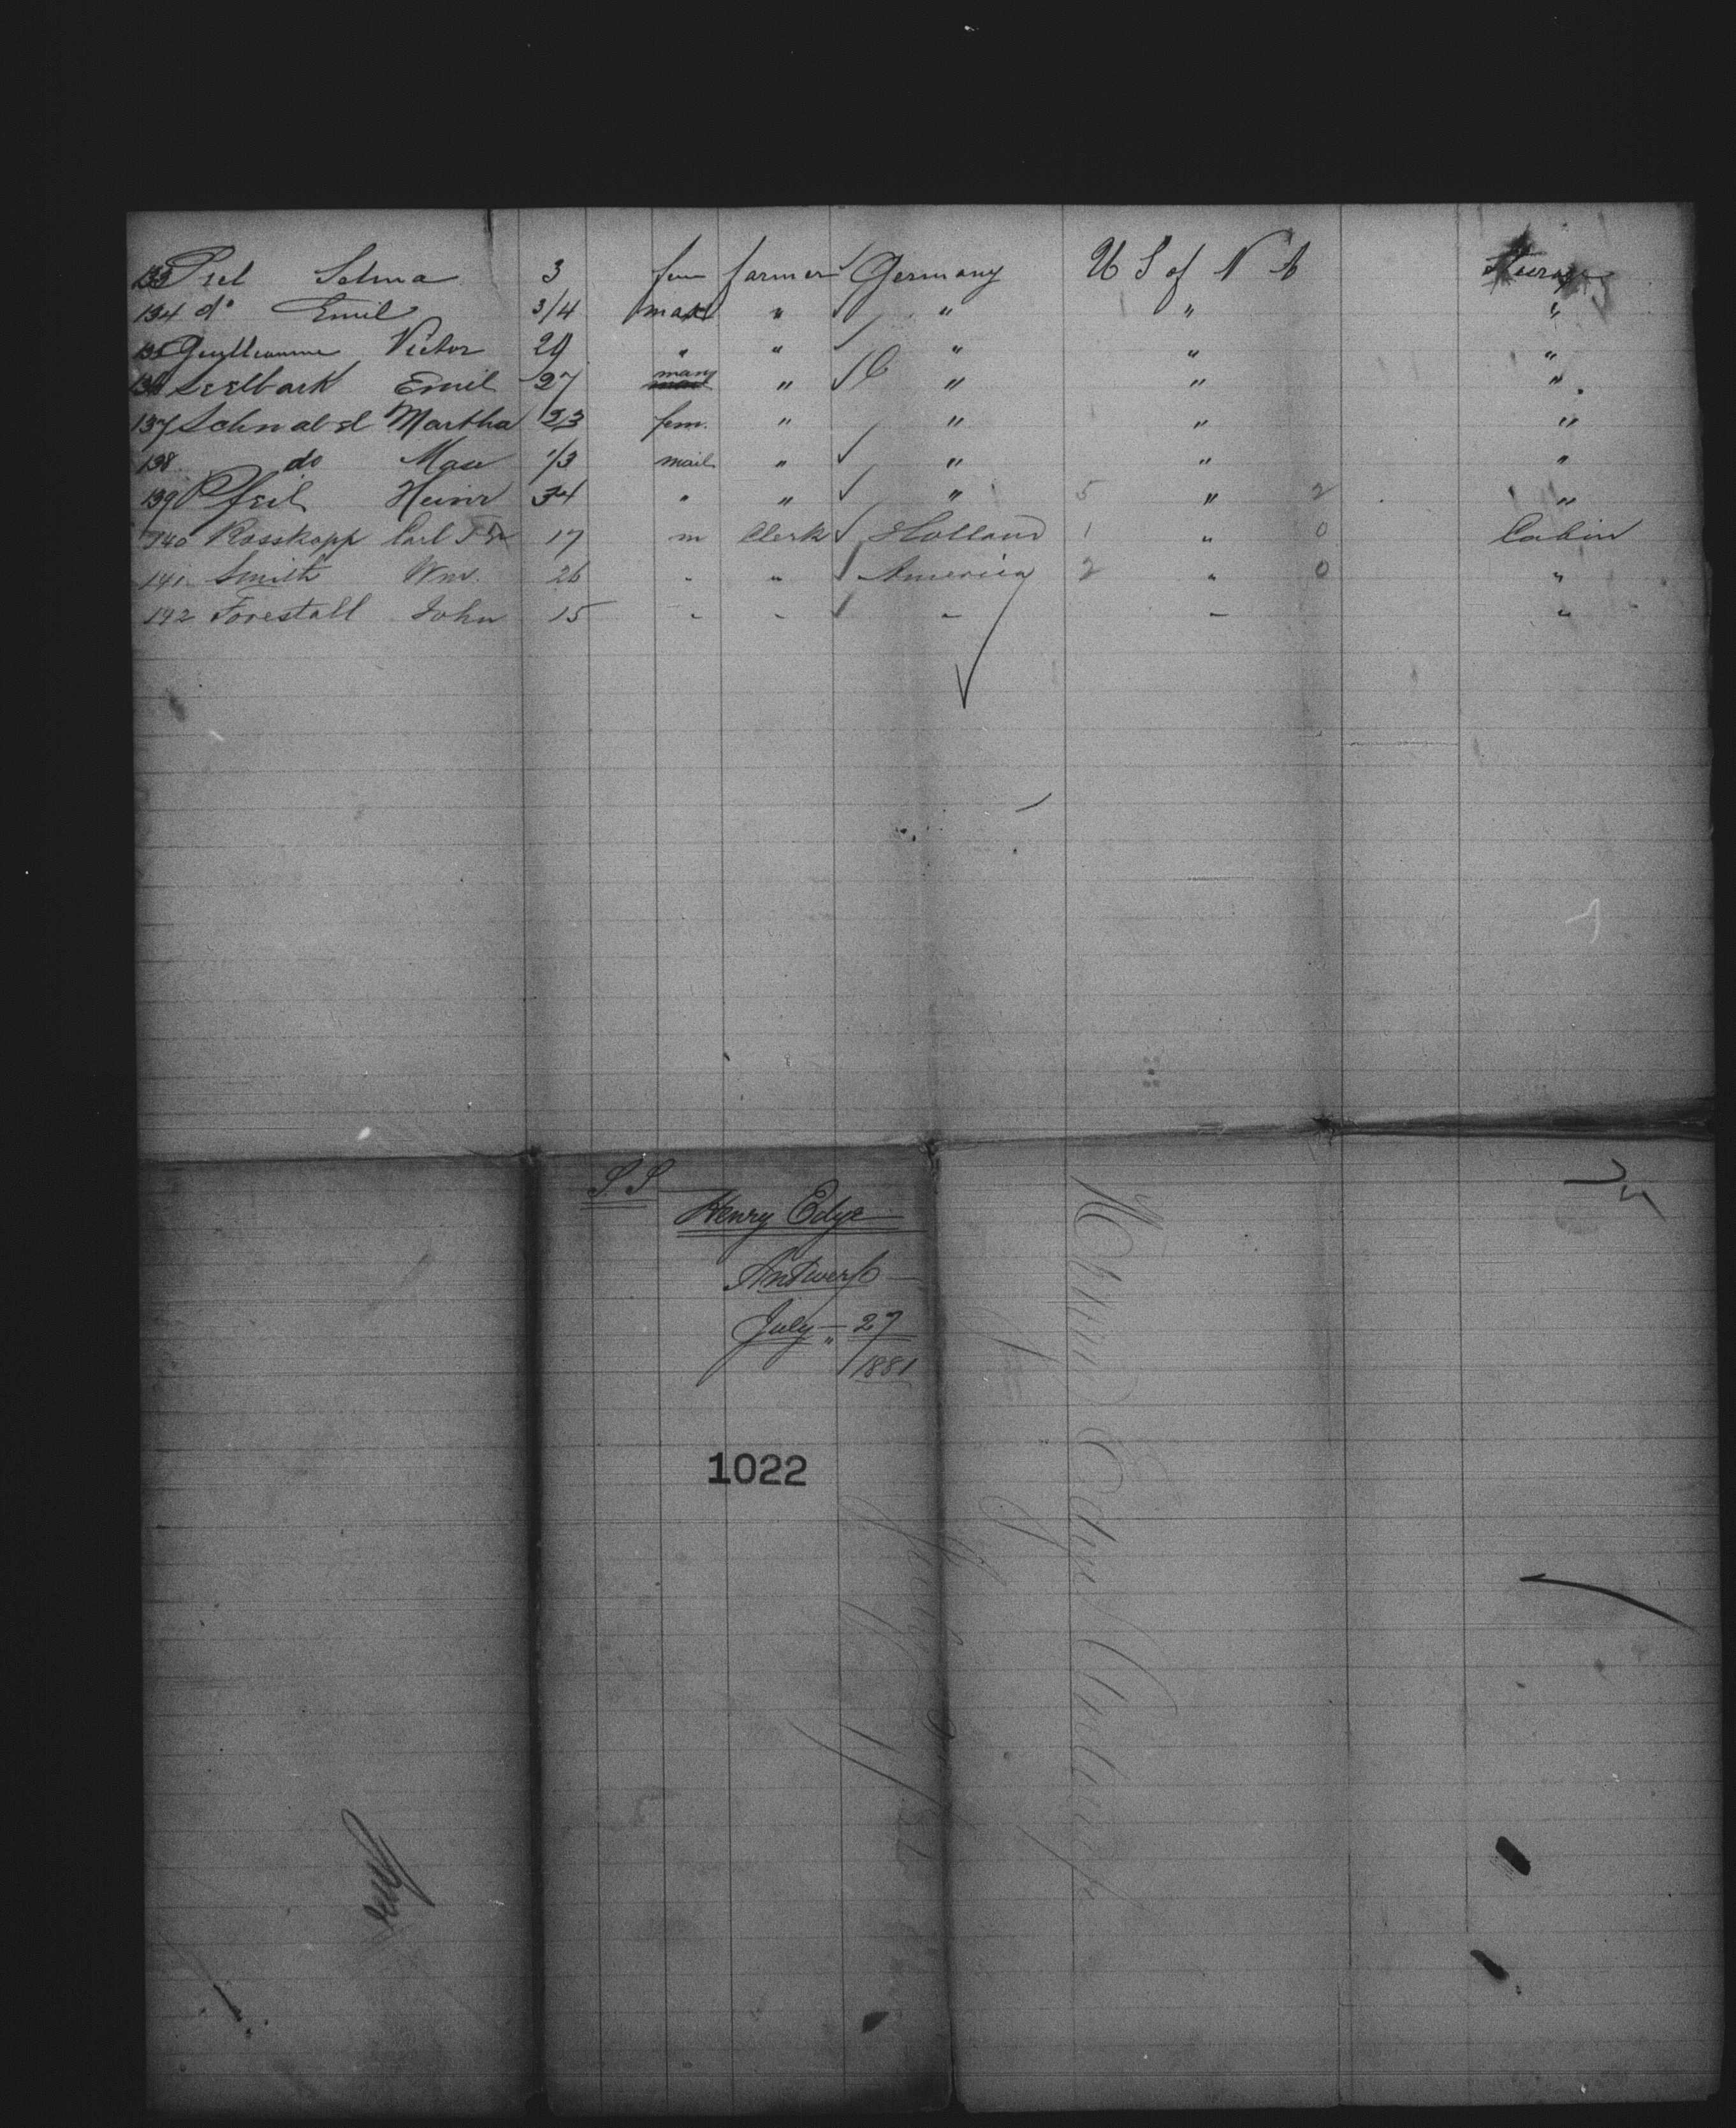 133 Prel Selma 3 fem farmer Germany U S of N A
134 do Emil 3/4 male " " " "
135 Guylleaume Victor 29 " " " " "
136 Seelbark Emil 27 " " " "
137 Schnabel Martha 23 fem. " " " "
138 do Max 1/3 mail " " " "
139 Pfeil Heinr 34 " " " 5 " 2 "
140 Rosskopp Carl 17 m Clerk Holland 1 " 0 Cabin
141 Smith Wm. 26 " " America 2 " 0 "
142 Forestall John 15 " " " " "
S S
Henry Edye
Antwerp
July 27
1881
1022
Henry Edye Antwerp